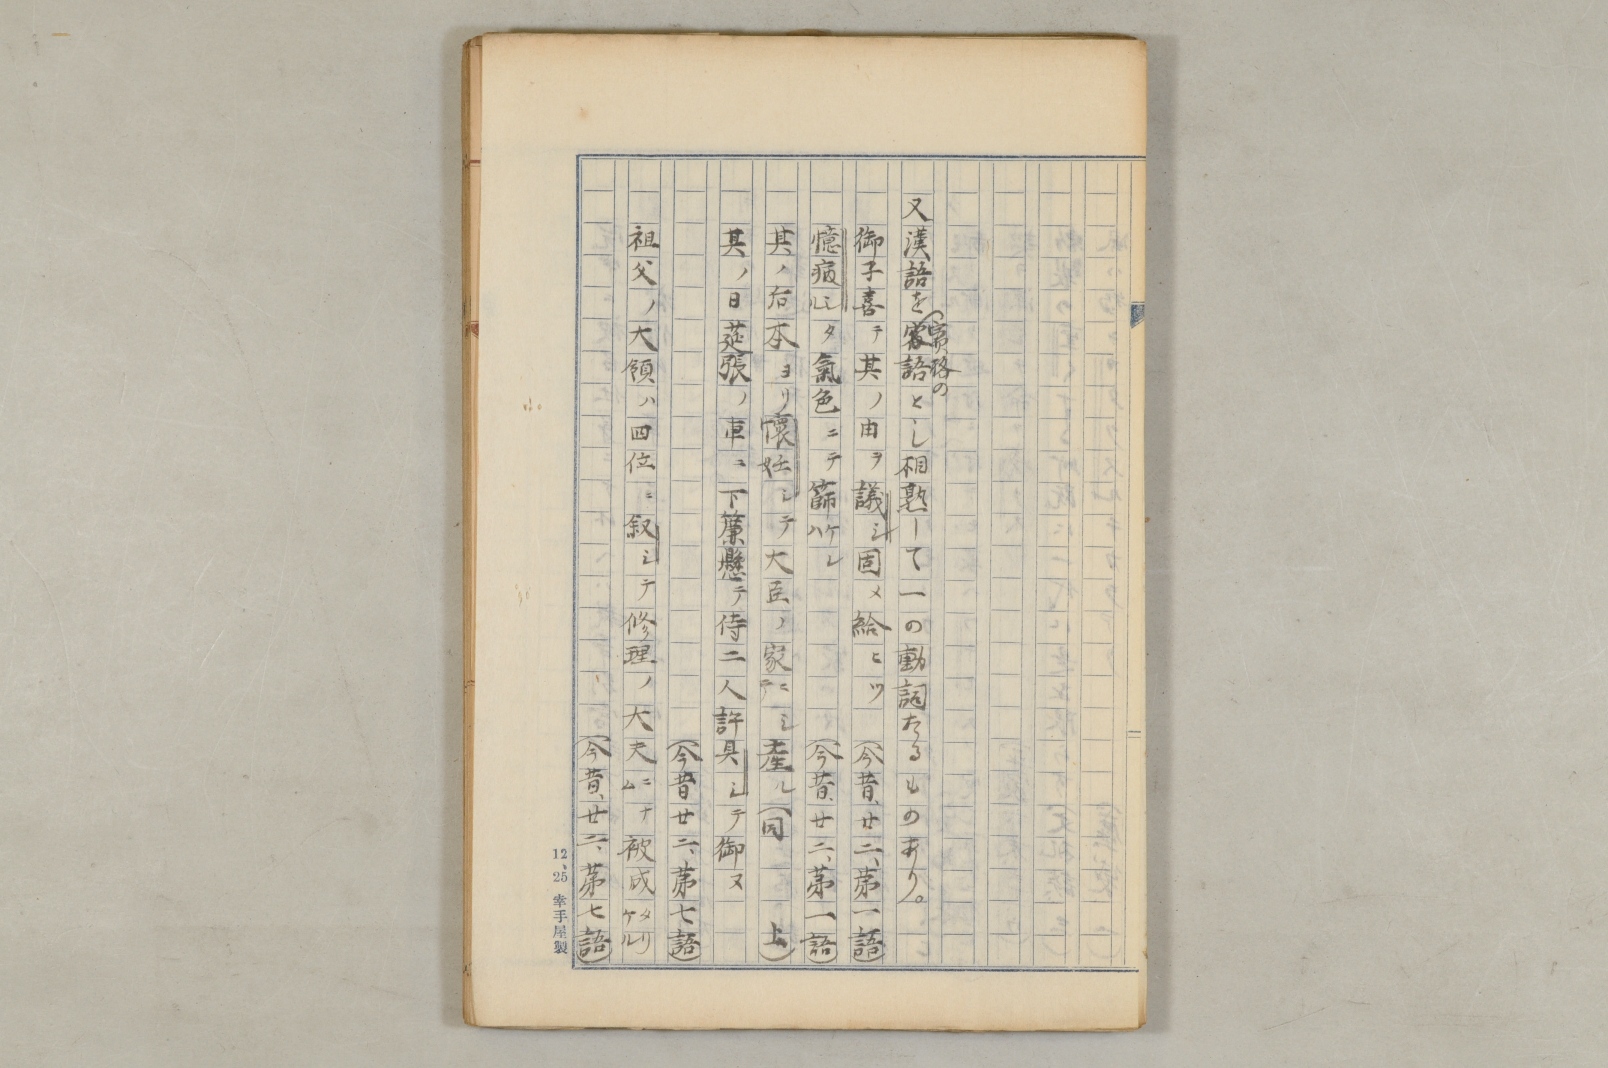 又漢語を賓語とし相熟して一の動詞たるものあり。
(賓格の
御子喜テ其ノ由ヲ議シ固メ給ヒツ (今昔、廿二、第一語)
憶病シルタ氣色ニテ篩ケレハ (今昔、廿二、第一語)
其ノ后本ヨリ懷妊シテ大臣ノ家ニシテ産ル (同 上)
其ノ日莚張ノ車ニ下簾懸テ侍二人許具シテ御ヌ
(今昔廿二、第七語)
祖父ノ大領ハ四位ニ叙シテ修理ノ大夫ニナム被成タリケル
(今昔、廿二、第七語)
12、25 幸手屋製